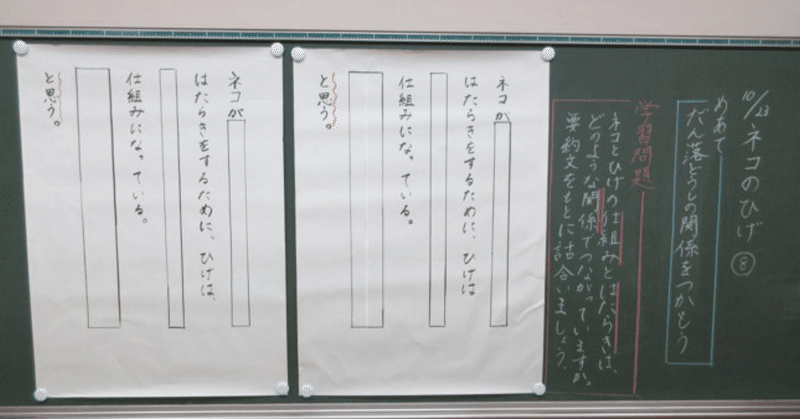 10/23 ネコのひげ ⑧
めあて
だん落どうしの関係をつかもう
学習問題
ネコとひげの仕組みとはたらきは、
どのような関係でつながっていますか。
要約文をもとに話合いましょう。
ネコが
はたらきをするために、ひげは
仕組みになっている。
と思う。
ネコが
はたらきをするために、ひげは、
仕組みになっている。
と思う。